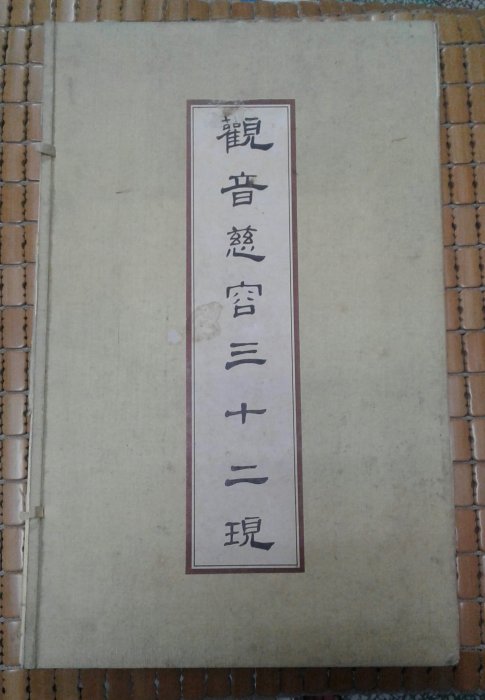 觀音慈容三十二現